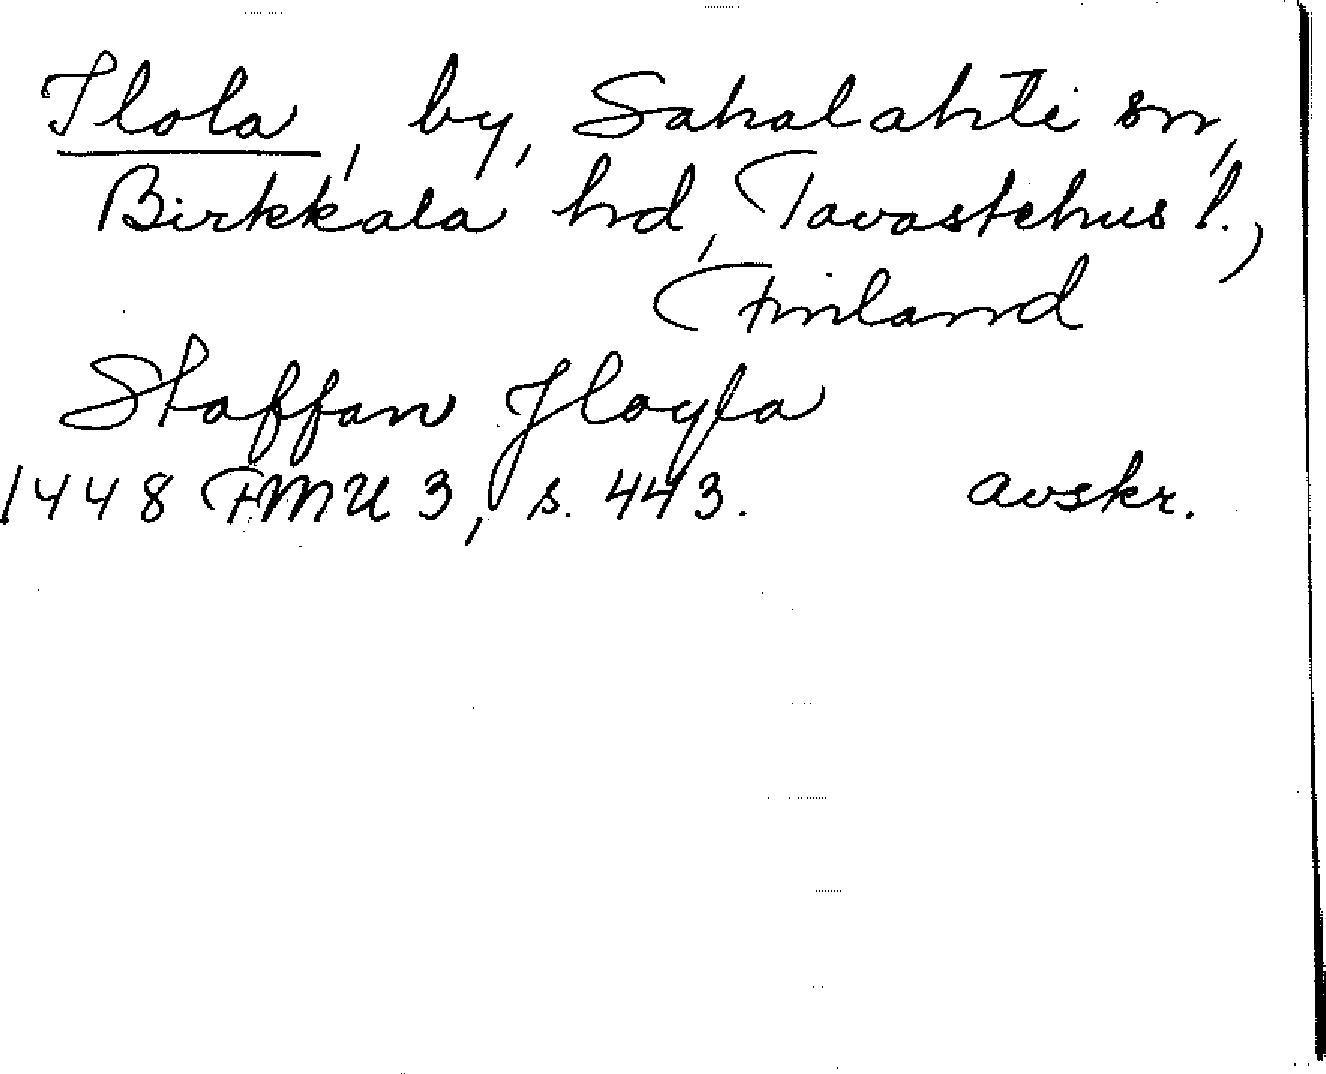 Ilola, by, Sahalahti sn,
Birkkala hd, Tavastehus l.,
Finland
Staffan Jloyla
1448 FMU 3, s. 443. avskr.